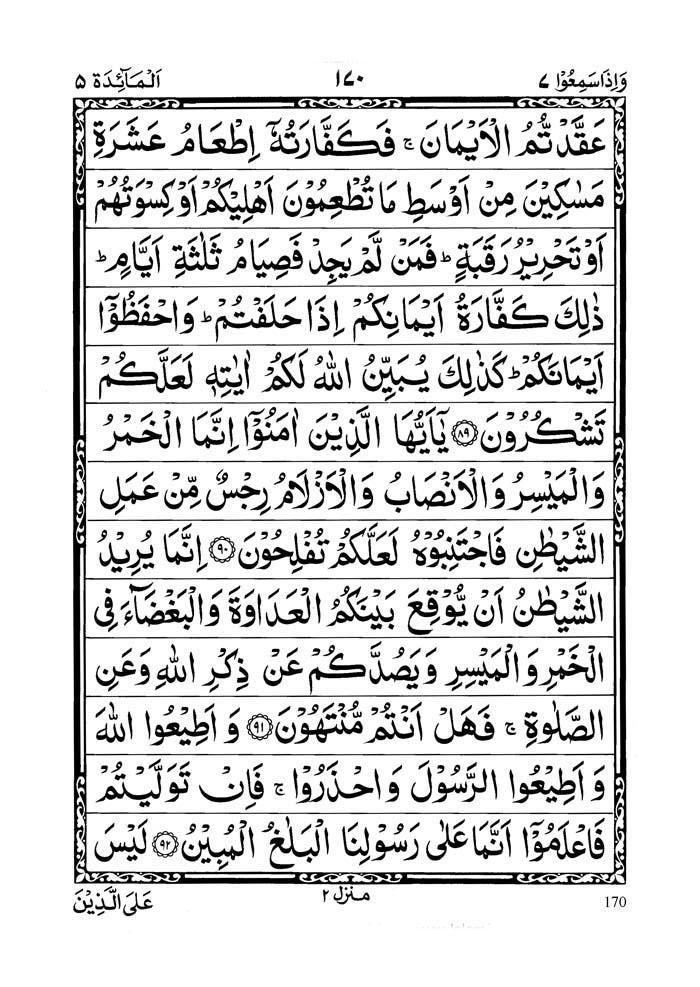 وَاِذَاسَمِعُوْا ۷
۱۷۰
اَلْمَآئِدَة ۵
عَقَّدْتُّمُ الْاَيْمَانَ ۚ فَكَفَّارَتُهٗۤ اِطْعَامُ عَشَرَةِ
مَسٰكِيْنَ مِنْ اَوْسَطِ مَا تُطْعِمُوْنَ اَهْلِيْكُمْ اَوْ كِسْوَتُهُمْ
اَوْ تَحْرِيْرُ رَقَبَةٍ ؕ فَمَنْ لَّمْ يَجِدْ فَصِيَامُ ثَلٰثَةِ اَيَّامٍ ؕ
ذٰلِكَ كَفَّارَةُ اَيْمَانِكُمْ اِذَا حَلَفْتُمْ ؕ وَاحْفَظُوْۤا
اَيْمَانَكُمْ ؕ كَذٰلِكَ يُبَيِّنُ اللّٰهُ لَكُمْ اٰيٰتِهٖ لَعَلَّكُمْ
تَشْكُرُوْنَ ۸۹ يٰۤاَيُّهَا الَّذِيْنَ اٰمَنُوْۤا اِنَّمَا الْخَمْرُ
وَالْمَيْسِرُ وَالْاَنْصَابُ وَالْاَزْلَامُ رِجْسٌ مِّنْ عَمَلِ
الشَّيْطٰنِ فَاجْتَنِبُوْهُ لَعَلَّكُمْ تُفْلِحُوْنَ ۹۰ اِنَّمَا يُرِيْدُ
الشَّيْطٰنُ اَنْ يُّوْقِعَ بَيْنَكُمُ الْعَدَاوَةَ وَالْبَغْضَآءَ فِي
الْخَمْرِ وَالْمَيْسِرِ وَيَصُدَّكُمْ عَنْ ذِكْرِ اللّٰهِ وَعَنِ
الصَّلٰوةِ ۚ فَهَلْ اَنْتُمْ مُّنْتَهُوْنَ ۹۱ وَاَطِيْعُوا اللّٰهَ
وَاَطِيْعُوا الرَّسُوْلَ وَاحْذَرُوْا ۚ فَاِنْ تَوَلَّيْتُمْ
فَاعْلَمُوْۤا اَنَّمَا عَلٰى رَسُوْلِنَا الْبَلٰغُ الْمُبِيْنُ ۹۲ لَيْسَ
170
منزل ۲
عَلَى الَّذِيْنَ